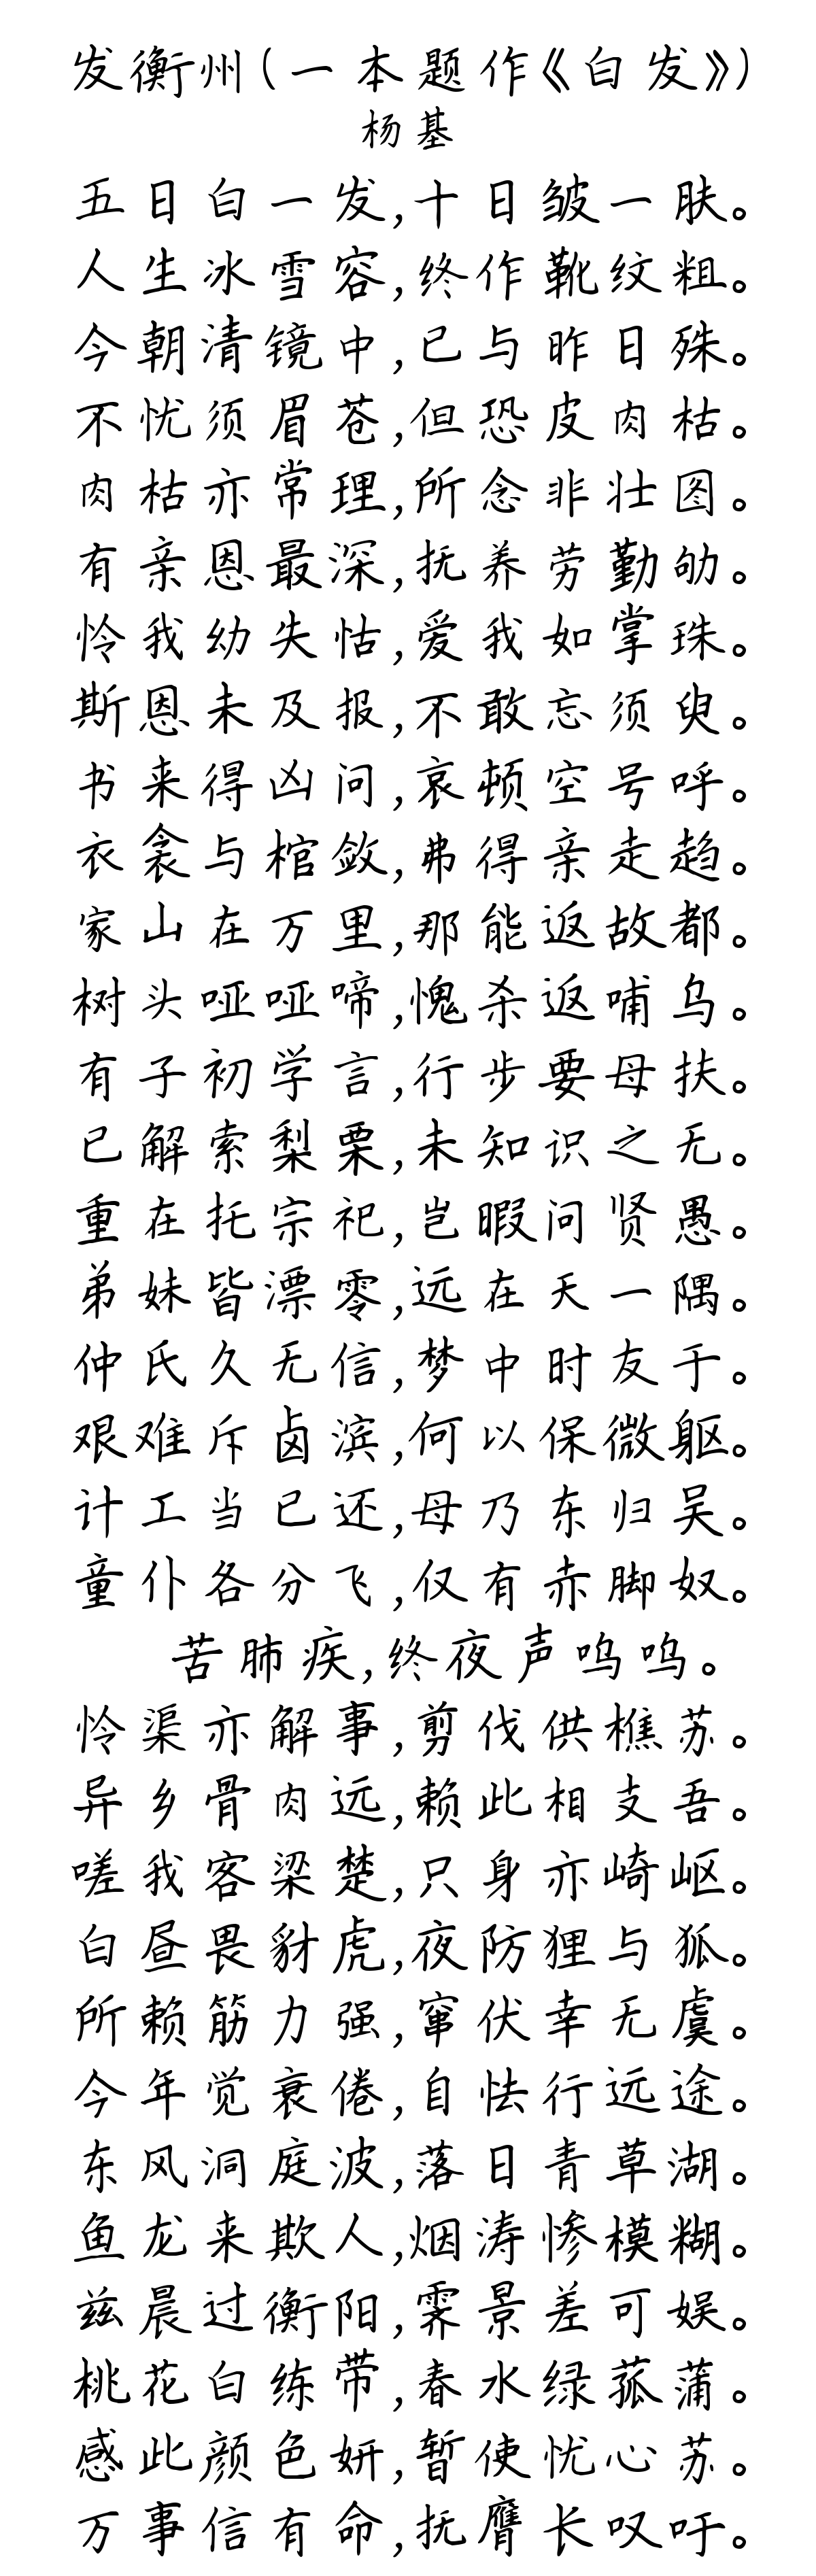 发衡州(一本题作《白发》)
杨基
五日白一发,十日皱一肤。
人生冰雪容,终作靴纹粗。
今朝清镜中,已与昨日殊。
不忧须眉苍,但恐皮肉枯。
肉枯亦常理,所念非壮图。
有亲恩最深,抚养劳勤劬。
怜我幼失怙,爱我如掌珠。
斯恩未及报,不敢忘须臾。
书来得凶问,哀顿空号呼。
衣衾与棺敛,弗得亲走趋。
家山在万里,那能返故都。
树头哑哑啼,愧杀返哺乌。
有子初学言,行步要母扶。
已解索梨栗,未知识之无。
重在托宗祀,岂暇问贤愚。
弟妹皆漂零,远在天一隅。
仲氏久无信,梦中时友于。
艰难斥卤滨,何以保微躯。
计工当已还,母乃东归吴。
童仆各分飞,仅有赤脚奴。
苦肺疾,终夜声呜呜。
怜渠亦解事,剪伐供樵苏。
异乡骨肉远,赖此相支吾。
嗟我客梁楚,只身亦崎岖。
白昼畏豺虎,夜防狸与狐。
所赖筋力强,窜伏幸无虞。
今年觉衰倦,自怯行远途。
东风洞庭波,落日青草湖。
鱼龙来欺人,烟涛惨模糊。
兹晨过衡阳,霁景差可娱。
桃花白练带,春水绿菰蒲。
感此颜色妍,暂使忧心苏。
万事信有命,抚膺长叹吁。